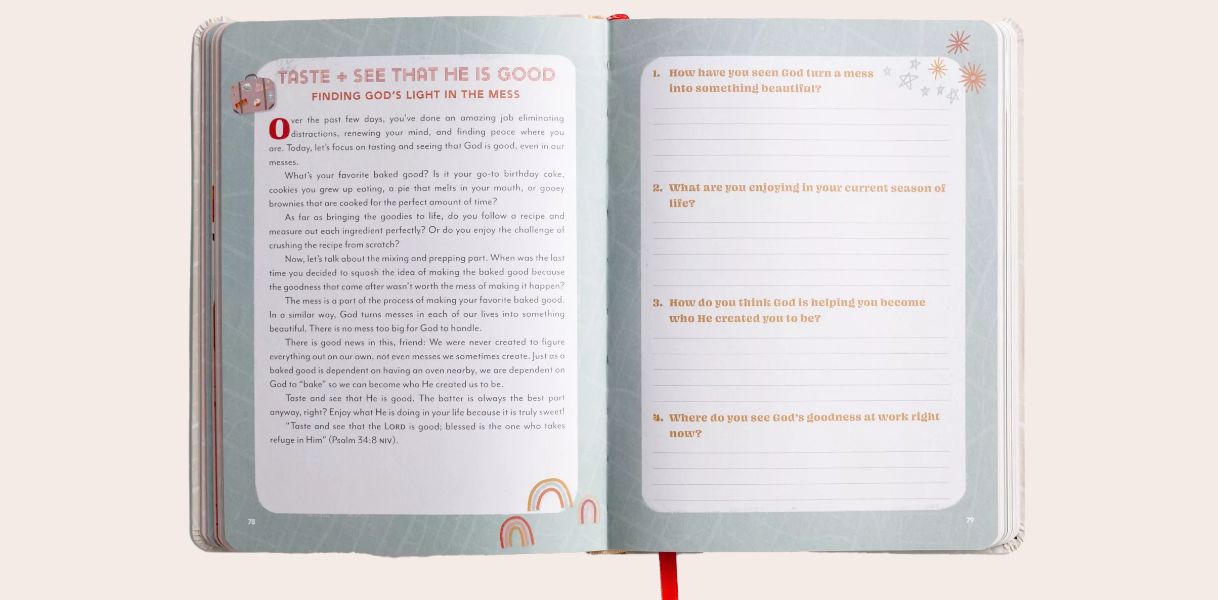 TASTE + SEE THAT HE IS GOOD
FINDING GOD'S LIGHT IN THE MESS
Over the past few days, you've done an amazing job eliminating
distractions, renewing your mind, and finding peace where you
are. Today, let's focus on tasting and seeing that God is good, even in our
messes.
What's your favorite baked good? Is it your go-to birthday cake,
cookies you grew up eating, a pie that melts in your mouth, or gooey
brownies that are cooked for the perfect amount of time?
As far as bringing the goodies to life, do you follow a recipe and
measure out each ingredient perfectly? Or do you enjoy the challenge of
crushing the recipe from scratch?
Now, let's talk about the mixing and prepping part. When was the last
time you decided to squash the idea of making the baked good because
the goodness that came after wasn't worth the mess of making it happen?
The mess is a part of the process of making your favorite baked good.
In a similar way, God turns messes in each of our lives into something
beautiful. There is no mess too big for God to handle.
There is good news in this, friend: We were never created to figure
everything out on our own, not even messes we sometimes create. Just as a
baked good is dependent on having an oven nearby, we are dependent on
God to "bake" so we can become who He created us to be.
Taste and see that He is good. The batter is always the best part
anyway, right? Enjoy what He is doing in your life because it is truly sweet!
"Taste and see that the LORD is good; blessed is the one who takes
refuge in Him" (Psalm 34:8 NIV).
78
1. How have you seen God turn a mess
into something beautiful?
2. What are you enjoying in your current season of
life?
3. How do you think God is helping you become
who He created you to be?
4. Where do you see God's goodness at work right
now?
79